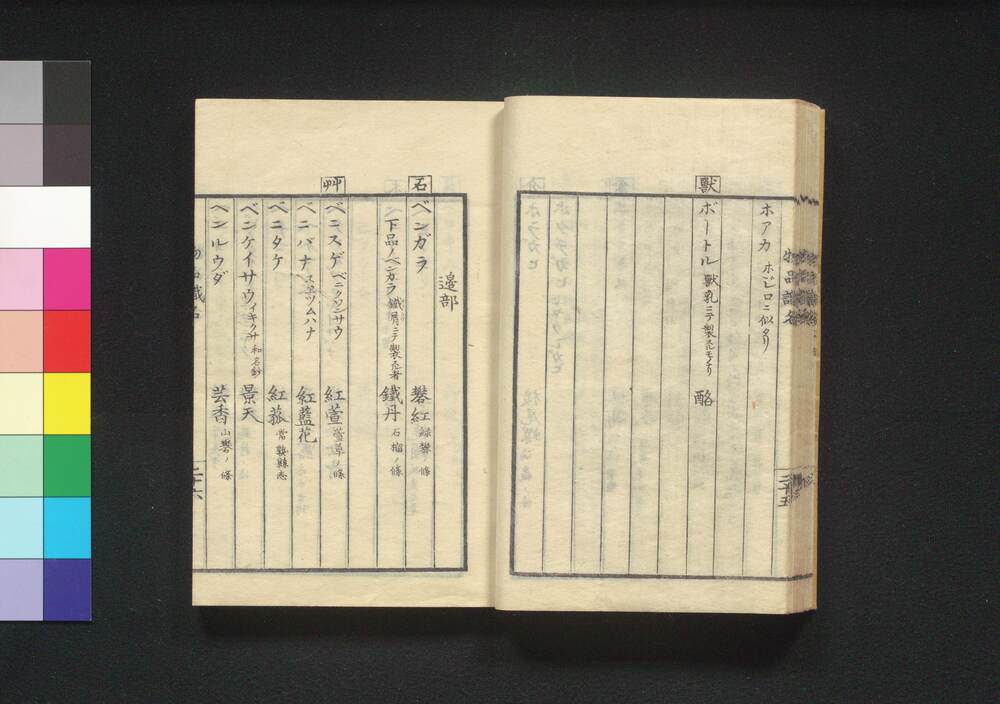 ホアカ ホジロニ似タリ
獣
ボートル 獣乳ニテ製 酪
邉部
石
ベンガラ 礬紅 緑礬ノ條
下品ノベンガラ 鐵屑ニテ製 者 鐵丹 石榴ノ條
艸
ベニスゲ ベニクワンサウ 紅萱 萱草ノ條
ベニバナ スヱツムハナ 紅藍花
ベニタケ 紅菰 常熟縣志
ベンケイサウ イキクサ 和名鈔 景天
ヘンルウダ 芸香 山礬ノ條
二十六